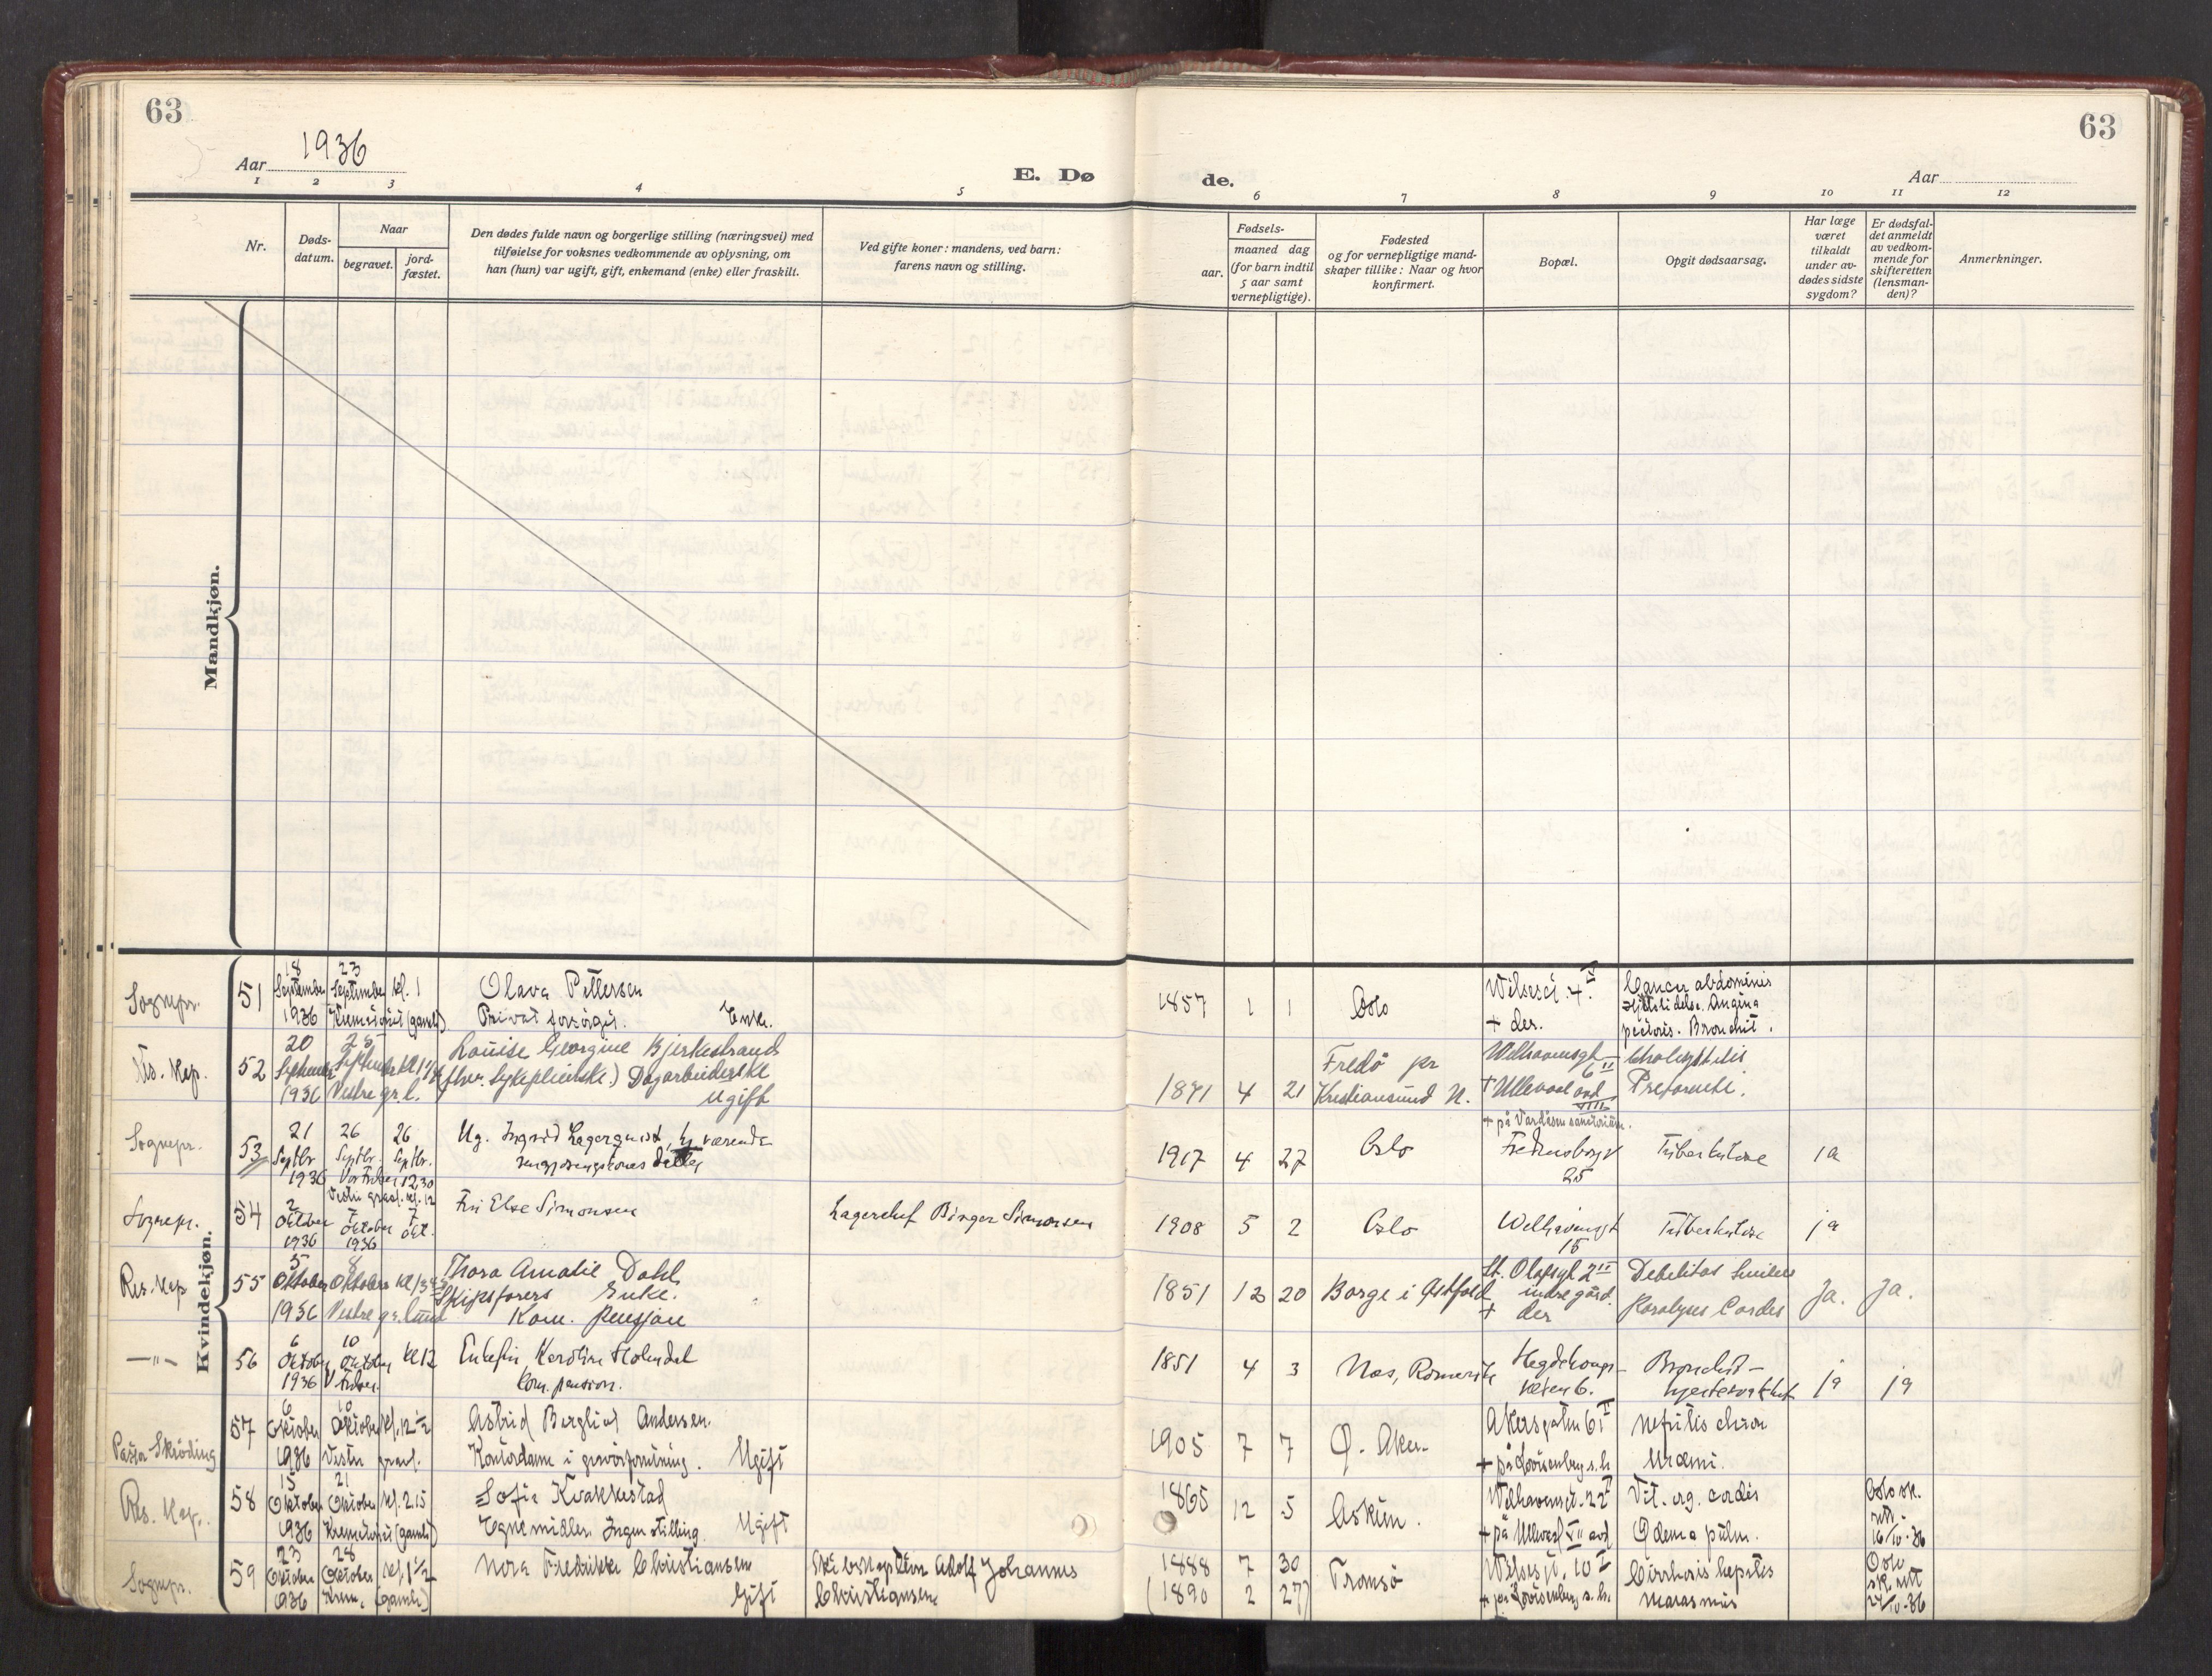 63
63
Aar 1936
E. Dø
de.
Aar
1
2
3
4
5
6
7
8
9
10
11
12
Nr.
Døds-
datum.
Naar
begravet.
jord-
fæstet.
Den dødes fulde navn og borgerlige stilling (næringsvei) med
tilføielse for voksnes vedkommende av oplysning, om
han (hun) var ugift, gift, enkemand (enke) eller fraskilt.
Ved gifte koner: mandens, ved barn:
farens navn og stilling.
Fødsels-
aar.
maaned dag
(for barn indtil
5 aar samt
vernepligtige).
Fødested
og for vernepligtige mand-
skaper tillike: Naar og hvor
konfirmert.
Bopæl.
Opgit dødsaarsag.
Har læge
været
tilkaldt
under av-
dødes sidste
sygdom?
Er dødsfal-
det anmeldt
av vedkom-
mende for
skifteretten
(lensman-
den)?
Anmerkninger.
Mandkjøn.
Kvindekjøn.
Sognepr.
51
18
September
1936
23
September kl. 1
Krematoriet (gamle).
Olava Pettersen
Privat forsørget. Enke.
1857 1 1
Oslo
+ der.
Cancer abdominis
Hjertelidelse. Angina
pectoris. Bronchit.
Res. Kap.
52
20
September
1936
25
September
Vestre gr. l.
Louise Georgine Bjerkestrand
(fhv. Sykepleierske.) Dagarbeiderske
Ugift
1871 4 21
Fredø pr
Kristiansund N.
Welhavensgt
6 II
+ Ullevaal avd
VIII
Sognepr.
53
21
Septbr
1936
26
Septbr.
26
Septbr.
12,30
Ug. Ingrid Lagerquist,
datter
1917 4 27
Oslo
+ på Vardåsen sanatorium.
Fredensborgv
25
Tuberkulose
ja
Sognepr.
54
2
Oktober
1936
Vestre gravl. kl. 12
7
Oktober
1936
7
okt.
Fru Else Simonsen
Lagerchef Birger Simonsen
1908 5 2
Oslo
Welhavensgt
15
Tuberkulose
ja
Res. Kap
55
5
Oktober
1936
8
Oktober
Vestre gr. lund
Thora Amalie Dahl,
Skipsførers Enke.
Kom. pensjon
1851 12 20
Borge i Østfold
St. Olafsgt 2 III
indre gård.
+ der
Debilitas Senilis
Paralyses Cordis
Ja.
Ja.
— " —
56
6
Oktober
1936
10
Oktober
kl 12
Enkefru Karoline Holmdal
Kom. pension.
1851 4 3
Nes, Romerik
Hegdehaugs-
veien 6.
Bronchit-
hjertesvakhet
ja
ja
Pastor Skrøding
57
6
Oktober
1936
10
Oktober kl. 12 1/2
Vestre gravl.
Astrid Bergliot Andersen.
Kontordame i gravørforretning. Ugift
1905 7 7
Ø. Aker
Akersgaten 61 I
+ på Lovisenberg s.h.
Nefritis chron
Uræmi.
Res. Kap.
58
15
Oktober
1936
21
Oktober kl. 2.15
Krematoriet (gamle)
Sofie Kvakkestad
Egne midler. Ingen stilling. Ugift
1865
12 5
Askim.
Welhavensgt. 22 I
+ på Ullevål VII avd
Vit. org. cordis
Ødema pulm.
Oslo sk.
rett.
16/10-36
Sognepr.
59
23
Oktober
1936
28
Oktober kl. 1 1/2
Krem. (gamle)
Nora Fredrikke Christiansen
Gift
Skibskaptein Adolf Johannes
Christiansen
1888 7 30
(1890 2 27)
Tromsø
+ på Lovisenberg s.h.
Cirrhosis hepatis
Marasmus
Oslo
sk. rett
24/10-36